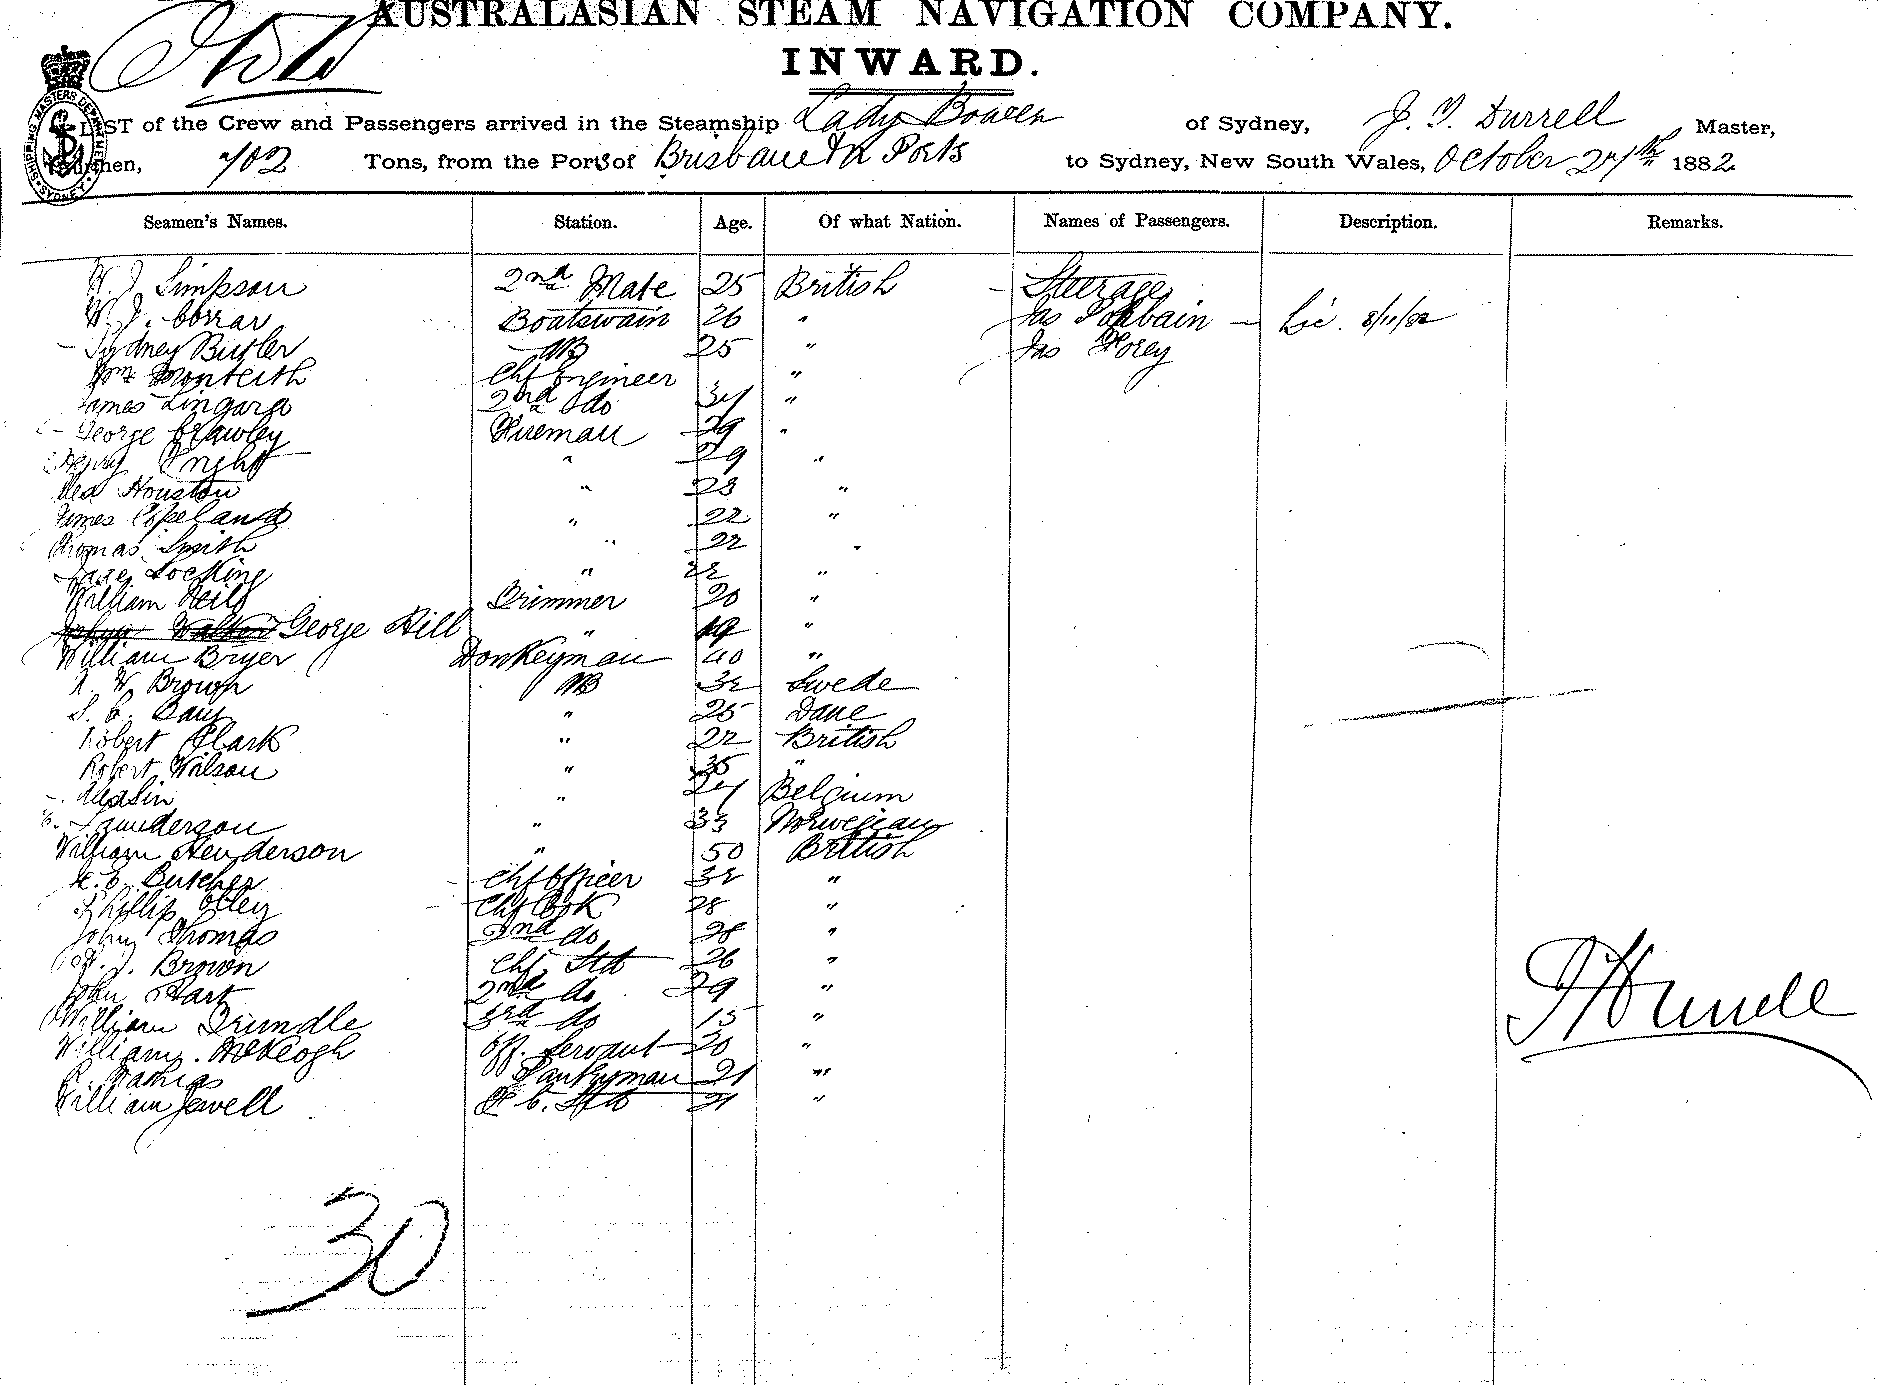 AUSTRALASIAN STEAM NAVIGATION COMPANY.
INWARD.
LIST of the Crew and Passengers arrived in the Steamship Lady Bowen of Sydney, J. T. Durrell Master,
Burthen, 702 Tons, from the Port of Brisbane & Ports to Sydney, New South Wales, October 27th 1882
Seamen's Names. Station. Age. Of what Nation. Names of Passengers. Description. Remarks.
Simpson 2nd Mate 25 British Steerage
W. J. Boatswain 26 " Jas Lic. 8/11/82
Sydney Butler AB 25 " Jas
Wm Monteith Chf Engineer "
James Lingard 2nd do 34 "
George Crawley Fireman 29 "
29 "
Houston " 23 "
James Copeland " 22 "
Thomas Smith " 22 "
Locking " 22 "
William Trimmer 20 "
George Hill " 19 "
William Bryer Donkeyman 40 "
W Brown AB 32 Swede
" 25 Dane
Robert Clark " 22 British
Robert Wilson " 35 "
" 24 Belgium
Saunderson " 33 Norwegian
William Henderson " 50 British
Butcher Chf Officer 32 "
Phillip Chf Cook 28 "
John Thomas 2nd do 28 "
J. Brown Chf Std 26 "
John Hart 2nd do 29 "
William Trundle 3rd do 15 "
William McKeogh Off. Servant 20 "
Pantryman 21 "
William Jewell Std 21 "
30